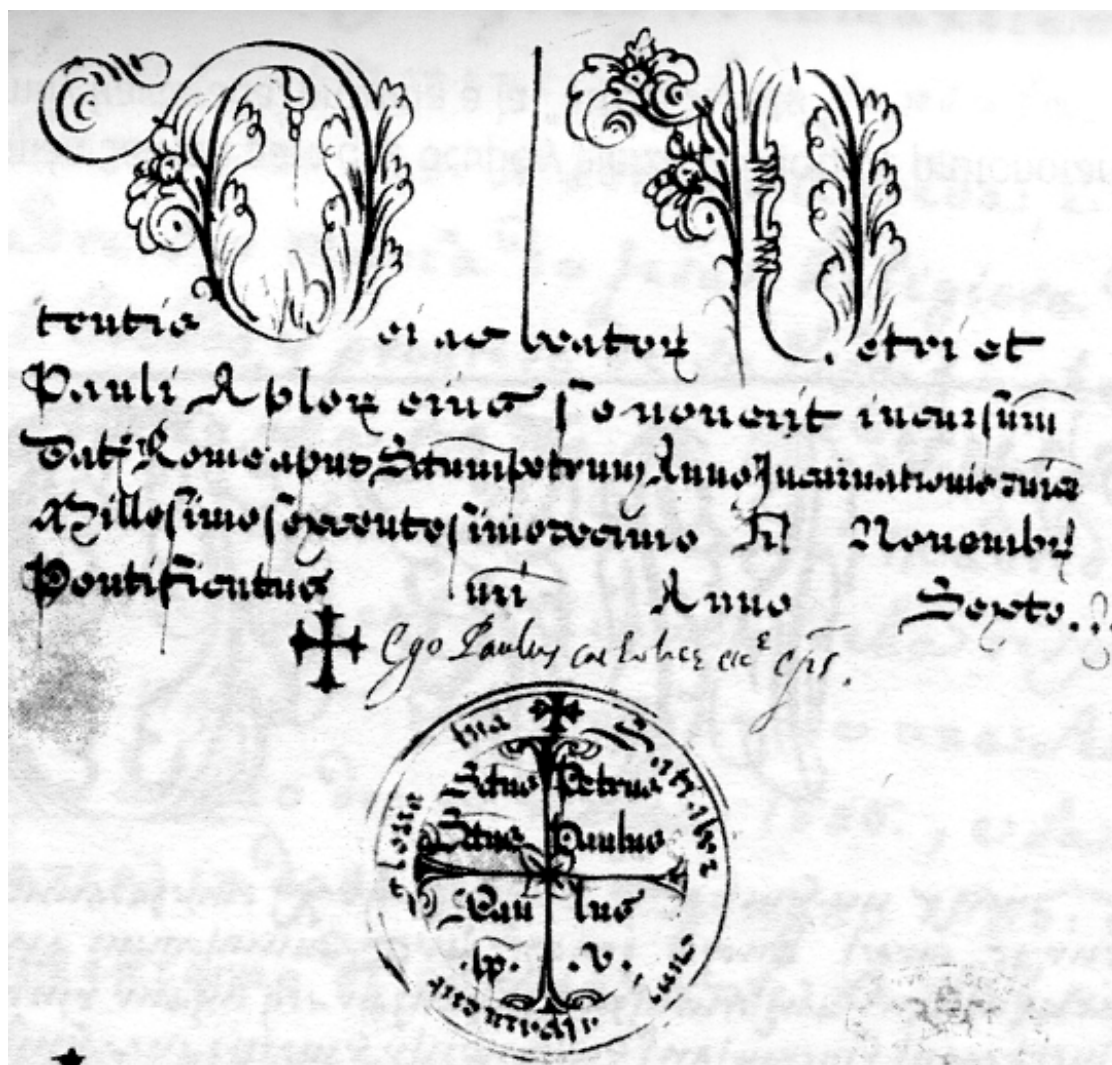 O P
tentis ei ac beatoꝝ . etri et
Pauli Aploꝝ eius se noverit incursum
Datꝭ Rome apud Sctum petrum Anno Incarnationis dnice
Millesimo sexcentesimo decimo Kl Novembꝝ
Pontificatus nri Anno Sexto..
Ego Paulus catholice ecc e eps.
Sctus Petrus
Sctus Paulus
Pau lus
.pp. .V.